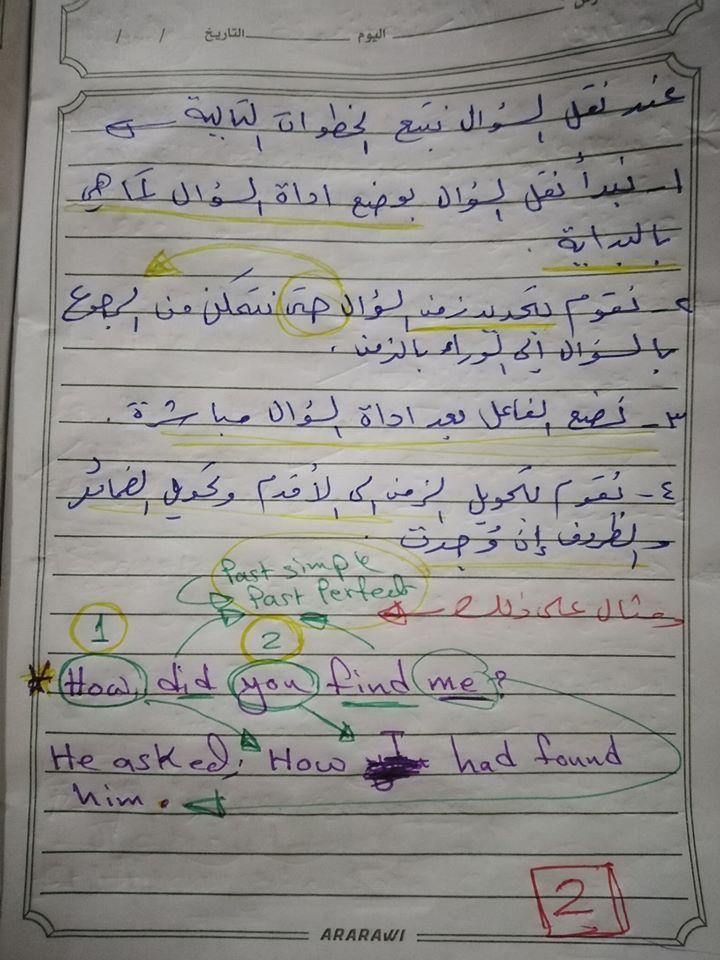 اليوم التاريخ / /
عند نقل السؤال نتبع الخطوات التالية
١- نبدأ نقل السؤال بوضع اداة السؤال كما هي
بالبداية .
٢- نقوم بتحديد زمن السؤال حتى نتمكن من الرجوع
بالسؤال إلى الوراء بالزمن .
٣- نضع الفاعل بعد اداة السؤال مباشرة .
٤- نقوم بتحويل الزمن الى الأقدم وتحويل الضمائر
والظروف إن وُجدت .
Past simple
Past perfect
مثال على ذلك
1 2
* How did you find me?
He asked; How I had found
him.
2
ARARAWI